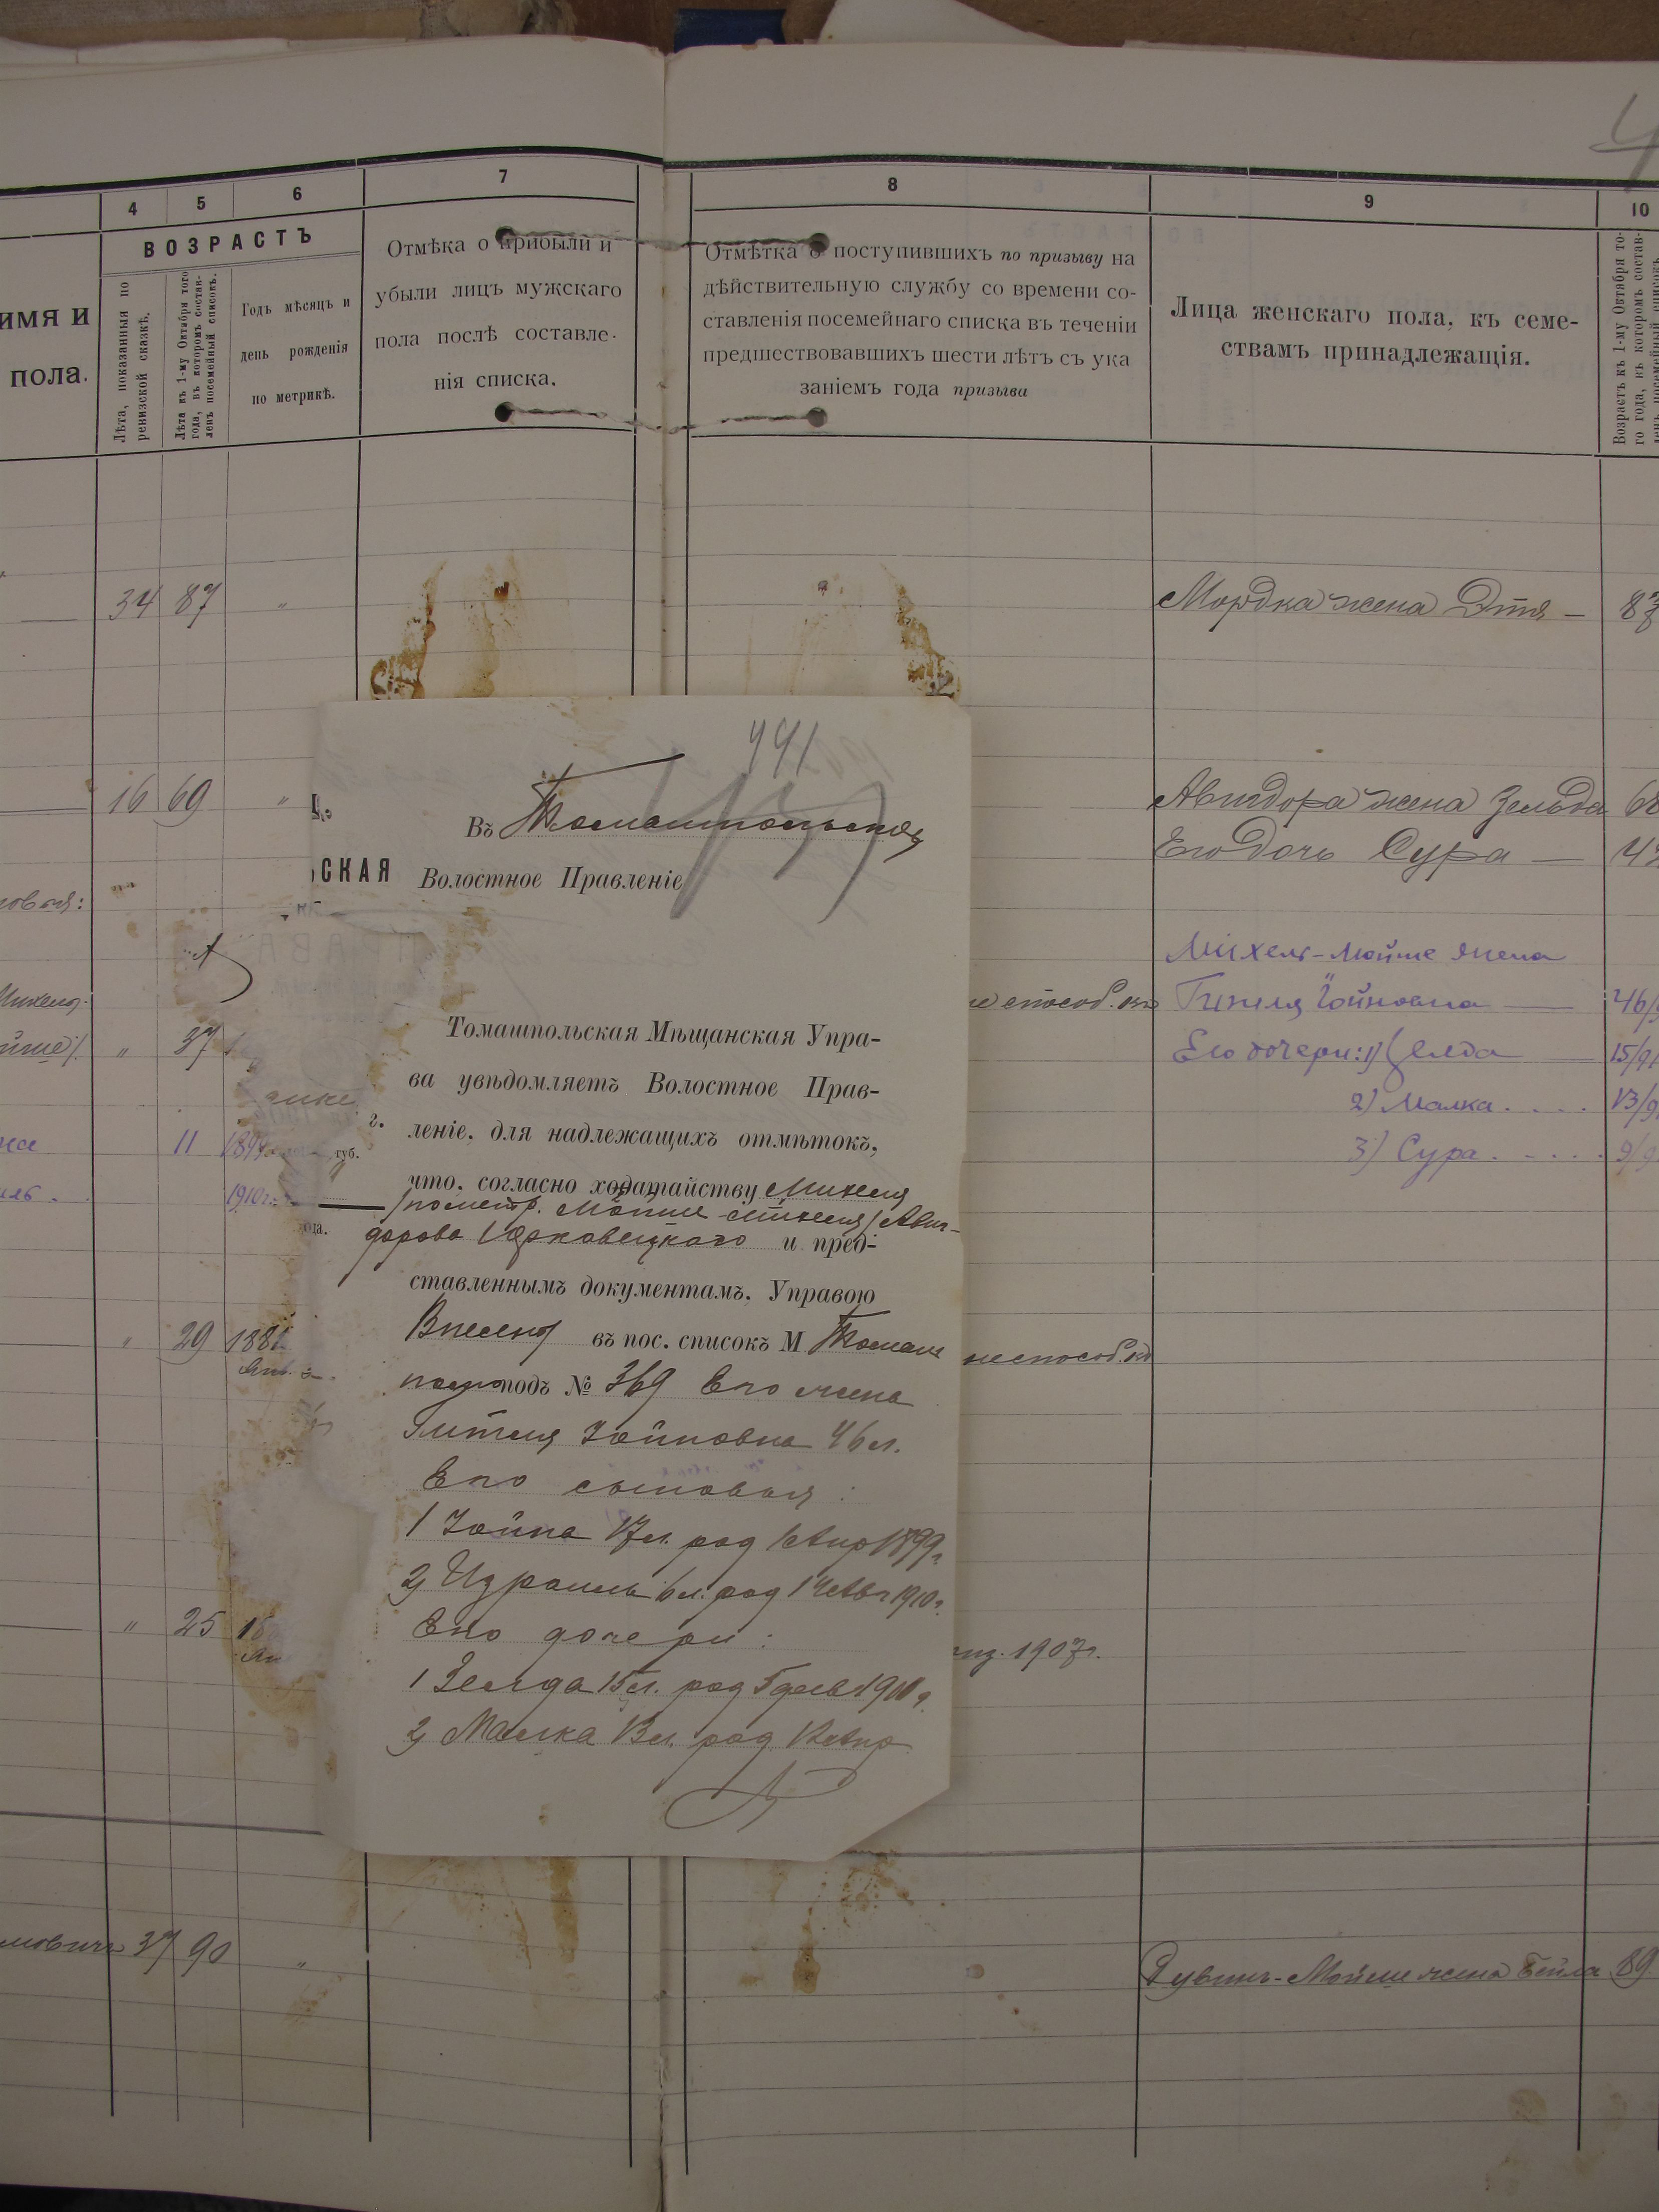 4
4 5 6 7 8 9 10
ИМЯ И
пола.
ВОЗРАСТЪ
Лѣта, показанныя по
ревизской сказкѣ.
Лѣта къ 1-му Октября того
года, въ которомъ состав-
ленъ посемейный списокъ.
Годъ мѣсяцъ и
день рожденія
по метрикѣ.
Отмѣка о прибыли и
убыли лицъ мужскаго
пола послѣ составле-
нія списка.
Отмѣтка о поступившихъ по призыву на
дѣйствительную службу со времени со-
ставленія посемейнаго списка въ теченіи
предшествовавшихъ шести лѣтъ съ ука
заніемъ года призыва
Лица женскаго пола, къ семе-
ствамъ принадлежащія.
Возрастъ къ 1-му Октября то-
го года, въ которомъ состав-
ленъ посемейный списокъ
34 87 "
Мордка жена Этя — 87
16 69 "
Авидора жена Зельда 68
Его дочь Сура —
овья:
Михель-Мойше жена
Гителя Іойновна — 46/
" 37
не способ. къ
Его дочери: 1) Зелда — 15/9
2) Малка . . . . 13/9
3) Сура . . . . 9/9
11 1899
1910 г.
" 29 1881
Янв.
неспособ. къ
" 25 18
1907 г.
мовичъ 37 90 "
Рувинъ-Мойше жена Бейла 89
441
Въ Томашпольское
СКАЯ Волостное Правленіе
Томашпольская Мѣщанская Упра-
ва увѣдомляетъ Волостное Прав-
г.
леніе, для надлежащихъ отмѣтокъ,
губ.
что, согласно ходатайству Михеля
/по метр. Мойше-Михеля/ Авиг-
дорова Юрковецкаго и пред-
ставленнымъ документамъ, Управою
Внесены въ пос. списокъ М Томаш
поля подъ № 369 Его жена
Гителя Іойновна 46 л.
Его сыновья:
1 Іойна 17 л. род 1 Апр 1899 г.
2) Израиль 6 л. род 14 Авг 1910 г.
Его дочери:
1 Зелда 15 л. род 5 дек
2) Малка 13 л. род Апр